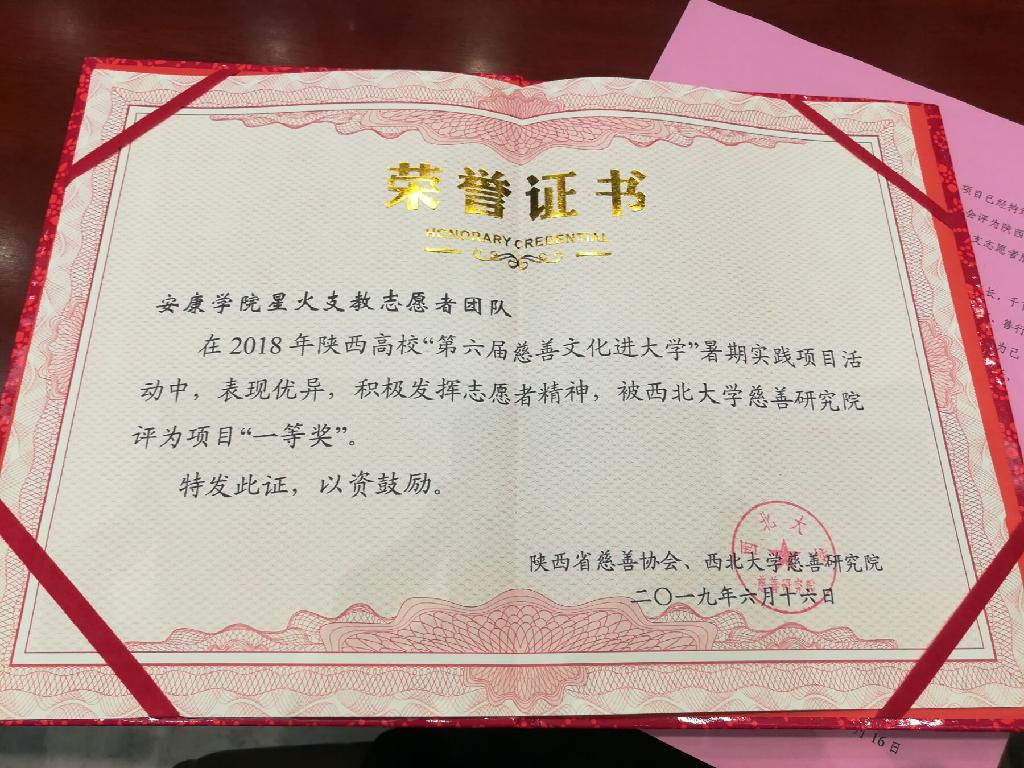 荣誉证书
HONORARY CREDENTIAL
安康学院星火支教志愿者团队
在2018年陕西高校“第六届慈善文化进大学”暑期实践项目活
动中，表现优异，积极发挥志愿者精神，被西北大学慈善研究院
评为项目“一等奖”。
特发此证，以资鼓励。
陕西省慈善协会、西北大学慈善研究院
二〇一九年六月十六日
西北大学
慈善研究院
项目已经持续
会评为陕西
支志愿者
长，千
善行
为已
月16日